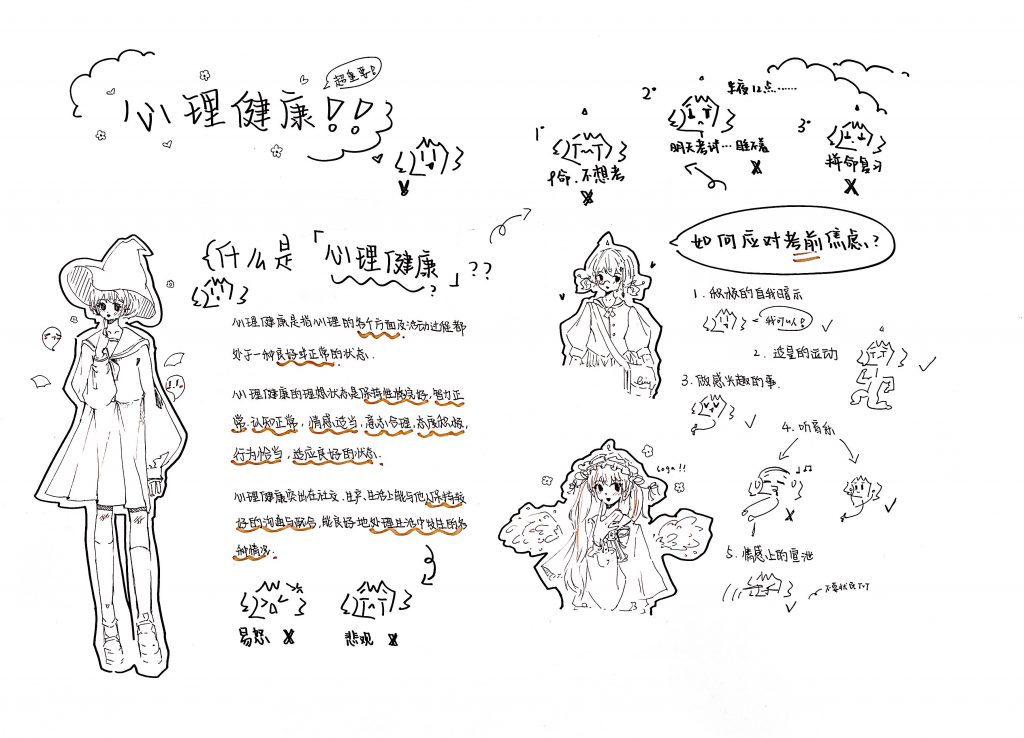 心理健康!!
超重要!
{什么是「心理健康」??
?
心理健康是指心理的各个方面及活动过程都
处于一种良好或正常的状态.
心理健康的理想状态是保持性格良好,智力正
常.认知正常,情感适当,意志合理,态度积极,
行为恰当,适应良好的状态.
心理健康突出在社交,生产,生活上能与他人保持较
好的沟通与配合,能良好地处理生活中发生的各
种情况.
易怒 X
悲观 X
1°
救命.不想考
X
2°
半夜12点……
明天考试…睡不着
X
3°
拼命复习
X
如何应对考前焦虑?
1.积极的自我暗示
我可以!
2.适量的运动
3.做感兴趣的事.
4.听音乐
X
5.情感上的宣泄
soga!!